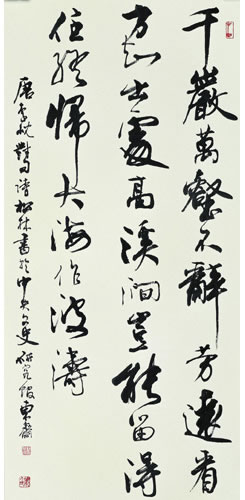 千巖萬壑不辭勞遠看
方知出處高溪澗豈能留得
住終歸大海作波濤
唐李忱對句松林書於中央文史研究館東齋